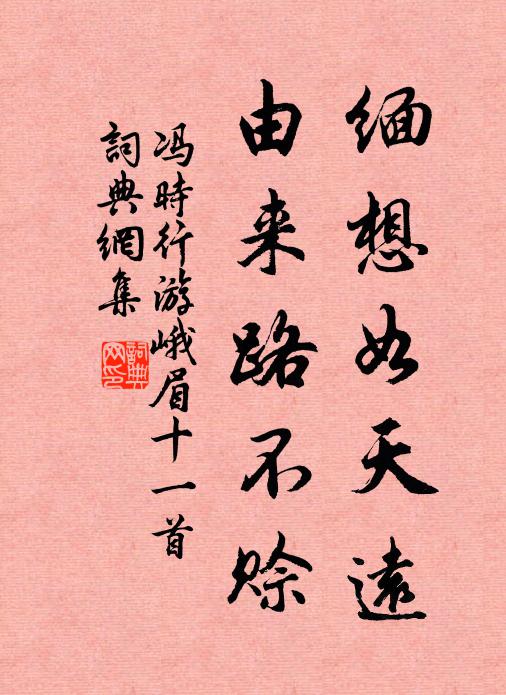 缅想如天遠
由来路不赊
冯時行游峨眉十一首
詞典網集
詞典网印